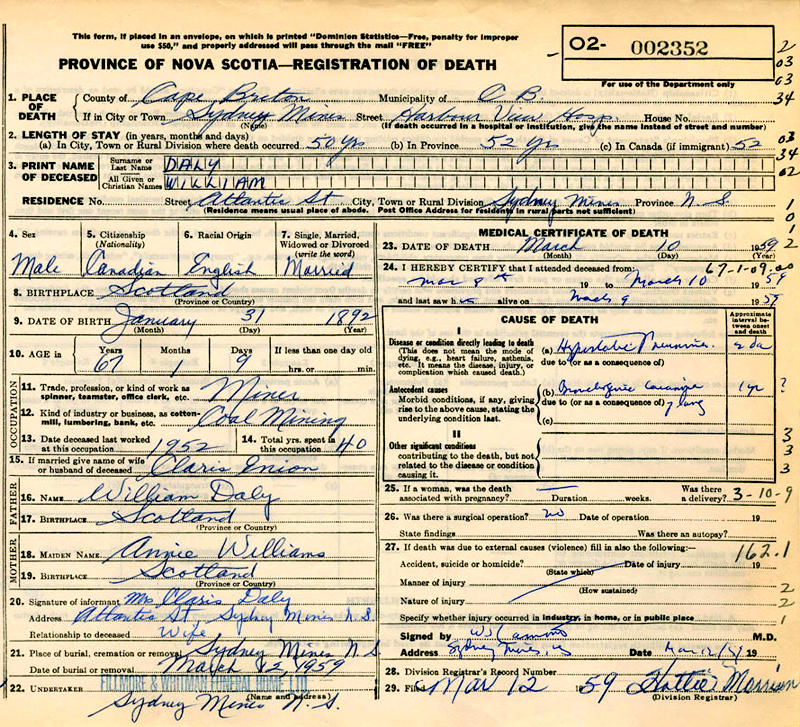 This form, if placed in an envelope, on which is printed "Dominion Statistics—Free, penalty for improper
use $50," and properly addressed will pass through the mail "FREE"
PROVINCE OF NOVA SCOTIA—REGISTRATION OF DEATH
O2- 002352
For use of the Department only
2
03
63
34
1. PLACE OF DEATH { County of Cape Breton Municipality of C B.
If in City or Town Sydney Mines Street Harbour View Hosp. House No.
(Name) (If death occurred in a hospital or institution, give the name instead of street and number)
2. LENGTH OF STAY (in years, months and days)
(a) In City, Town or Rural Division where death occurred 50 yrs (b) In Province 52 yrs (c) In Canada (if immigrant) 52
03
34
02
3. PRINT NAME OF DECEASED { Surname or Last Name DALY
All Given or Christian Names WILLIAM
RESIDENCE No. Street Atlantic St City, Town or Rural Division Sydney Mines Province N. S.
(Residence means usual place of abode. Post Office Address for residents in rural parts not sufficient)
1
0
1
2
4. Sex 5. Citizenship (Nationality) 6. Racial Origin 7. Single, Married, Widowed or Divorced (write the word)
Male Canadian English Married
8. BIRTHPLACE Scotland
(Province or Country)
9. DATE OF BIRTH January 31 1892
(Month) (Day) (Year)
10. AGE in Years Months Days If less than one day old
67 1 9 hrs. or min.
OCCUPATION
11. Trade, profession, or kind of work as spinner, teamster, office clerk, etc. Miner
12. Kind of industry or business, as cotton-mill, lumbering, bank, etc. Coal Mining
13. Date deceased last worked at this occupation 1952 14. Total yrs. spent in this occupation 40
15. If married give name of wife or husband of deceased Claris Inion
FATHER
16. NAME William Daly
17. BIRTHPLACE Scotland
(Province or Country)
MOTHER
18. MAIDEN NAME Annie Williams
19. BIRTHPLACE Scotland
(Province or Country)
20. Signature of informant Mrs Claris Daly
Address Atlantic St, Sydney Mines N. S.
Relationship to deceased Wife
21. Place of burial, cremation or removal Sydney Mines N S
Date of burial or removal March 12, 1959
FILLMORE & WHITMAN FUNERAL HOME LTD.
22. UNDERTAKER (Name and address)
Sydney Mines N. S.
MEDICAL CERTIFICATE OF DEATH
23. DATE OF DEATH March 10 1959
(Month) (Day) (Year)
67-1-09.00
24. I HEREBY CERTIFY that I attended deceased from:
Mar 8th 19 to March 10 1959
and last saw h alive on March 9 1959
CAUSE OF DEATH
Approximate interval between onset and death
I
Disease or condition directly leading to death
(This does not mean the mode of dying, e.g., heart failure, asthenia, etc. It means the disease, injury, or complication which caused death.)
(a) Hypostatic Pneumonia 2 da
due to (or as a consequence of)
Antecedent causes
Morbid conditions, if any, giving rise to the above cause, stating the underlying condition last.
(b) Bronchogenic Carcinoma 1 yr ?
due to (or as a consequence of) of lung
(c)
II
Other significant conditions
contributing to the death, but not related to the disease or condition causing it.
3
3
3
25. If a woman, was the death associated with pregnancy? Duration weeks. Was there a delivery? 3-10-9
26. Was there a surgical operation? no Date of operation 19
State findings Was there an autopsy?
27. If death was due to external causes (violence) fill in also the following:—
162.1
Accident, suicide or homicide? Date of injury 19
(State which)
Manner of injury 2
(How sustained)
Nature of injury 2
Specify whether injury occurred in industry, in home, or in public place 1
Signed by M.D.
Address Sydney Mines, Date Mar 12/59 19
28. Division Registrar's Record Number
29. Filed Mar 12 1959 Hattie Morrison
(Division Registrar)